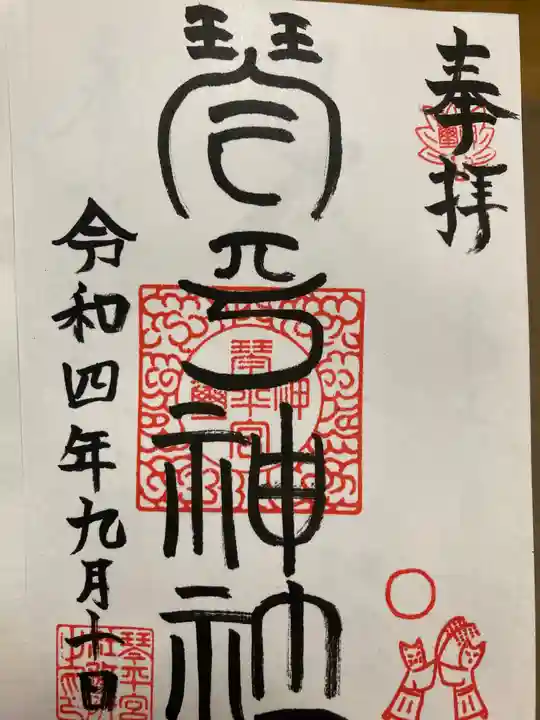 奉拝
琴平神社
令和四年九月十日
琴平宮